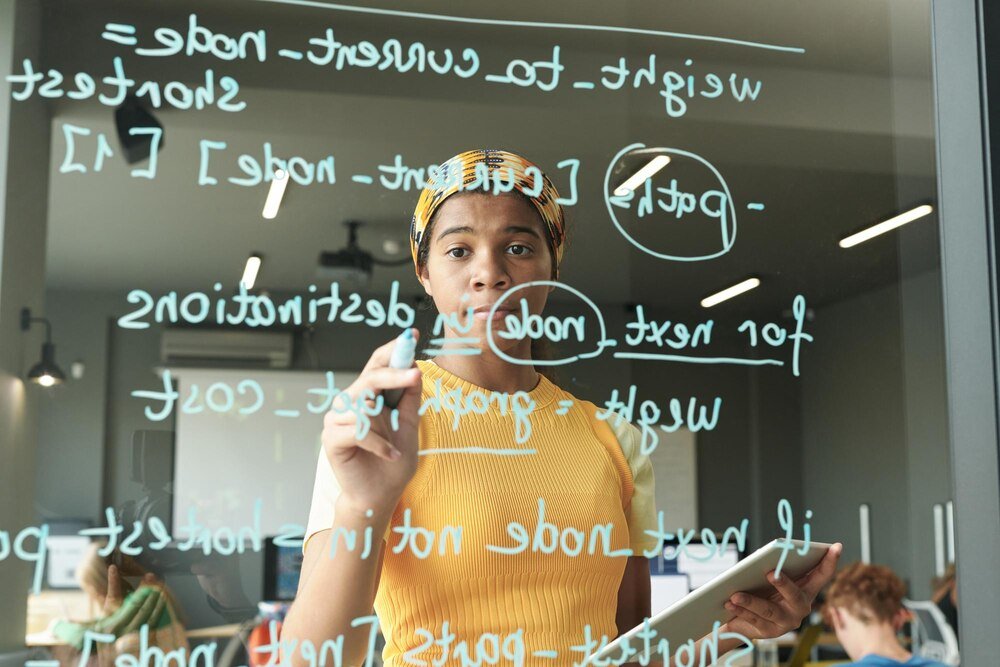 weight_to_current_node =
shortest
- paths [current_node] [1]
for next_node in destinations
weight = graph, get_cost
if next_node not in shortest_pa
shortest_parts [next_node